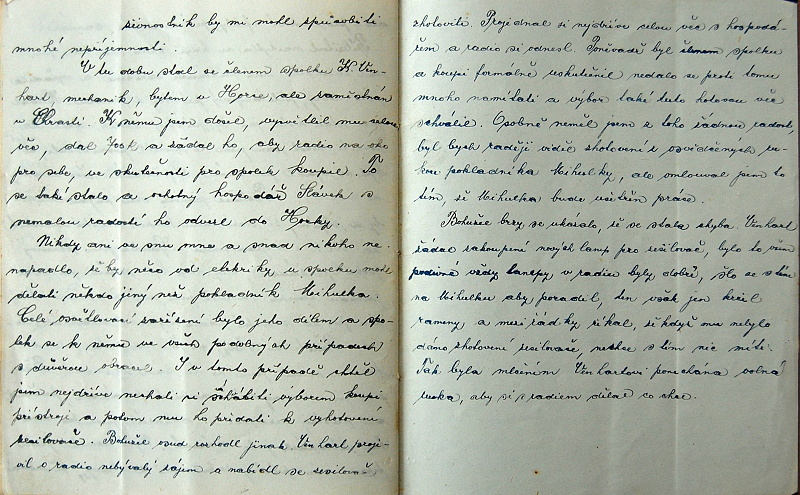 živnostník by mi mohl způsobiti
mnohé nepříjemnosti.
V tu dobu stal se členem spolku K. Vin-
hart, mechanik, bytem v Horce, ale zaměstnán
v Chrasti. K němu jsem došel, vysvětlil mu celou
věc, dal a žádal ho, aby radio na oko
pro sebe, ve skutečnosti pro spolek koupil. To
se také stalo a ochotný hospodář Slávek s
nemalou radostí ho odvezl do Horky.
Nikdy ani ve snu mne a snad nikoho ne-
napadlo, že by něco od elektriky u spolku mohl
dělati někdo jiný než pokladník Mihulka.
Celé osvětlovací zařízení bylo jeho dílem a spo-
lek se k němu ve všech podobných případech
s důvěrou obracel. I v tomto případě chtěl
jsem nejdříve nechati si schváliti výborem koupi
přístroje a potom mu ho přidati k vyhotovení
zesilovače. Bohužel osud rozhodl jinak. Vinhart proje-
vil o radio nebývalý zájem a nabídl se zesilovač
zhotoviti. Projednal si nejdříve celou věc s hospodá-
řem a radio si odnesl. Poněvadž byl členem spolku
a koupi formálně uskutečnil nedalo se proti tomu
mnoho namítati a výbor také tuto hotovou věc
schválil. Osobně neměl jsem z toho žádnou radost,
byl bych raději viděl zhotovení z osvědčených ru-
kou pokladníka Mihulky, ale omlouval jsem to
tím, že Mihulka bude ušetřen práce.
Bohužel brzy se ukázalo, že se stala chyba. Vinhart
žádal zakoupení nových lamp pro zesilovač, bylo to všem
podivné vždy lampy v radiu byly dobré, šlo se s tím
na Mihulku aby poradil, ten však jen krčil
rameny a mezi řádky říkal, že když mu nebylo
dáno zhotovení zesilovače, nechce s tím nic míti.
Tak byla mlčením Vinhartovi ponechána volná
ruka, aby si s radiem dělal co chce.